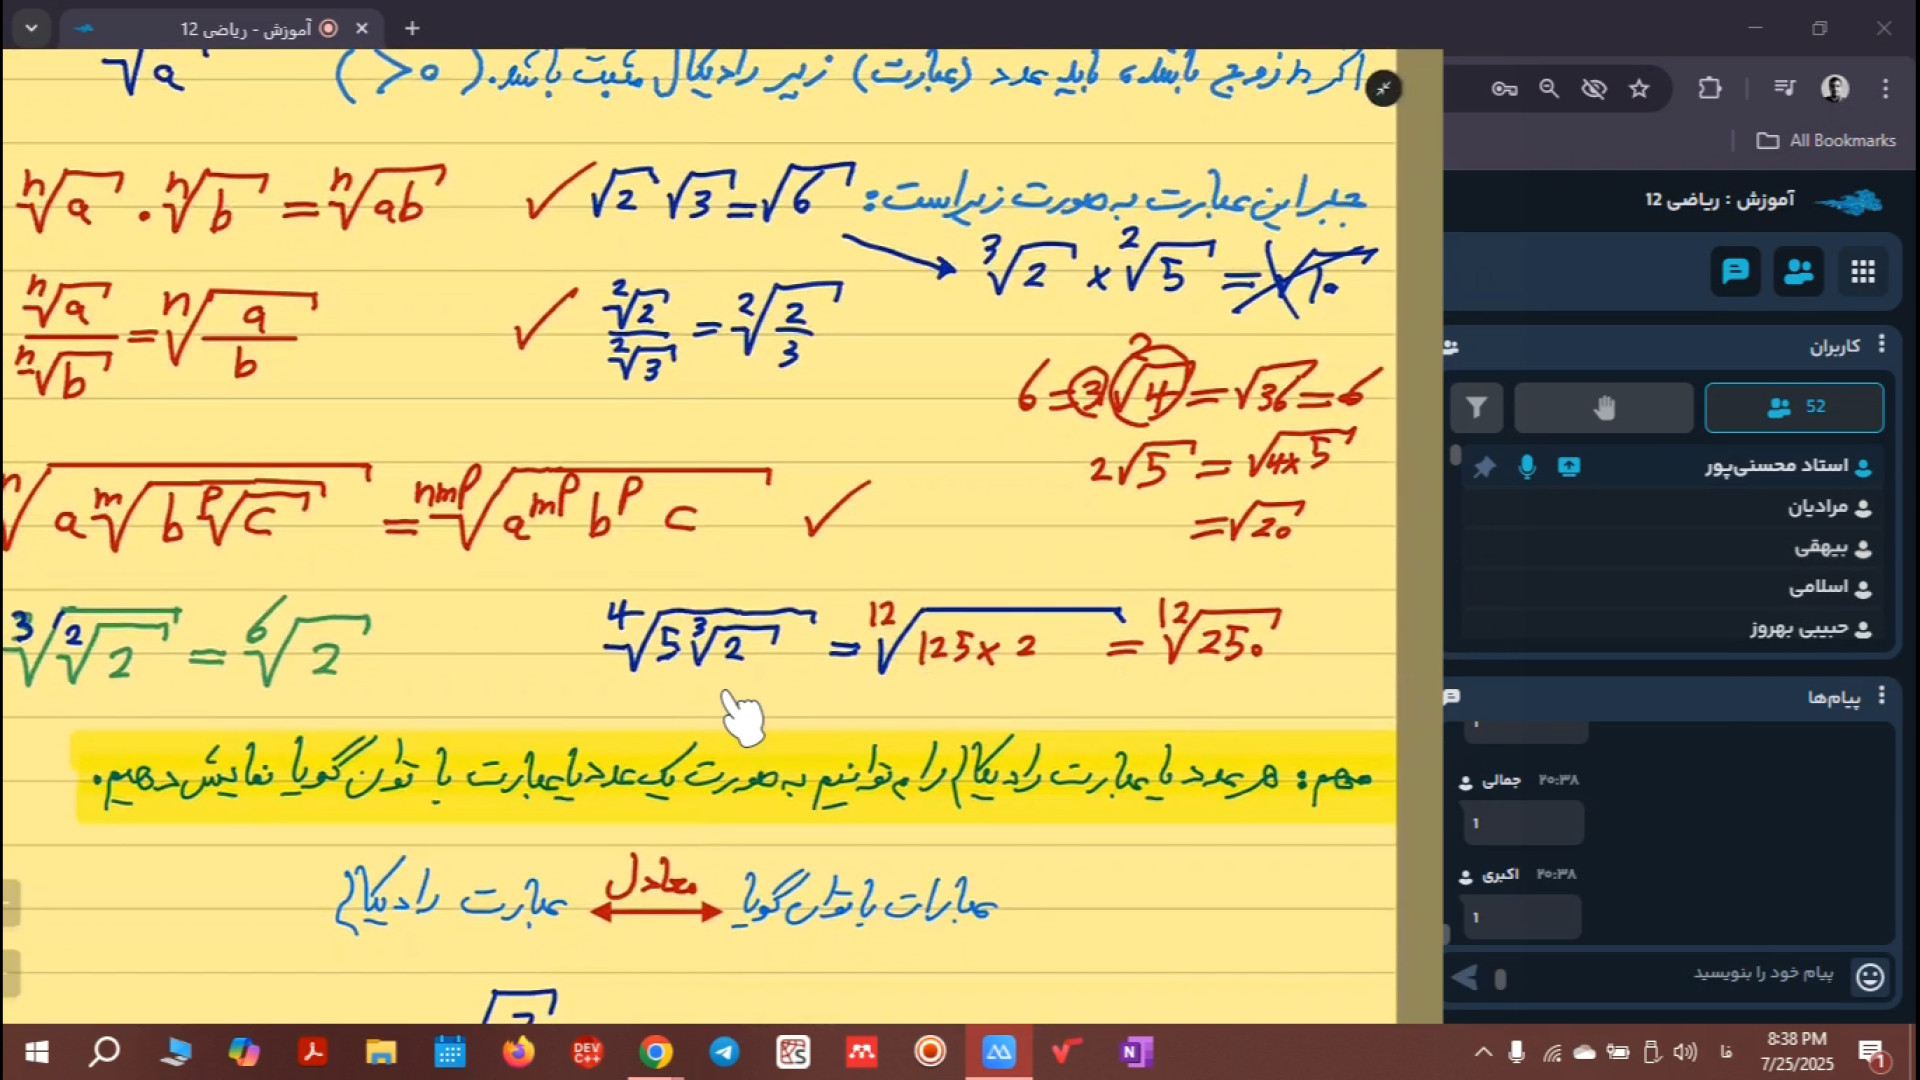 آموزش - ریاضی 12
All Bookmarks
√a
اگر n زوج باشد، باید عدد (عبارت) زیر رادیکال مثبت باشد. (>0)
ⁿ√a . ⁿ√b = ⁿ√ab
✓ √2 √3 = √6
جبر این عبارت به صورت زیر است:
³√2 × ²√5 = √10
ⁿ√a / ⁿ√b = ⁿ√(a/b)
✓ ²√2 / ²√3 = ²√(2/3)
6 = 3 ²√4 = √36 = 6
2√5 = √4×5
= √20
ⁿ√(a ᵐ√(b ᵖ√c)) = ⁿᵐᵖ√(aᵐᵖ bᵖ c) ✓
³√(²√2) = ⁶√2
⁴√(5 ³√2) = ¹²√(125×2) = ¹²√250
مهم: هر عدد یا عبارت رادیکالی را می‌توانیم به صورت یک عدد یا عبارت با توان گویا نمایش دهیم.
عبارات با توان گویا ↔ عبارت رادیکالی
معادل
آموزش : ریاضی 12
کاربران
52
استاد محسنی‌پور
مرادیان
بیهقی
اسلامی
حبیبی بهروز
پیام‌ها
1
جمالی ۲۰:۳۸
1
اکبری ۲۰:۳۸
1
پیام خود را بنویسید
DEV C++
N
فا
8:38 PM
7/25/2025
1